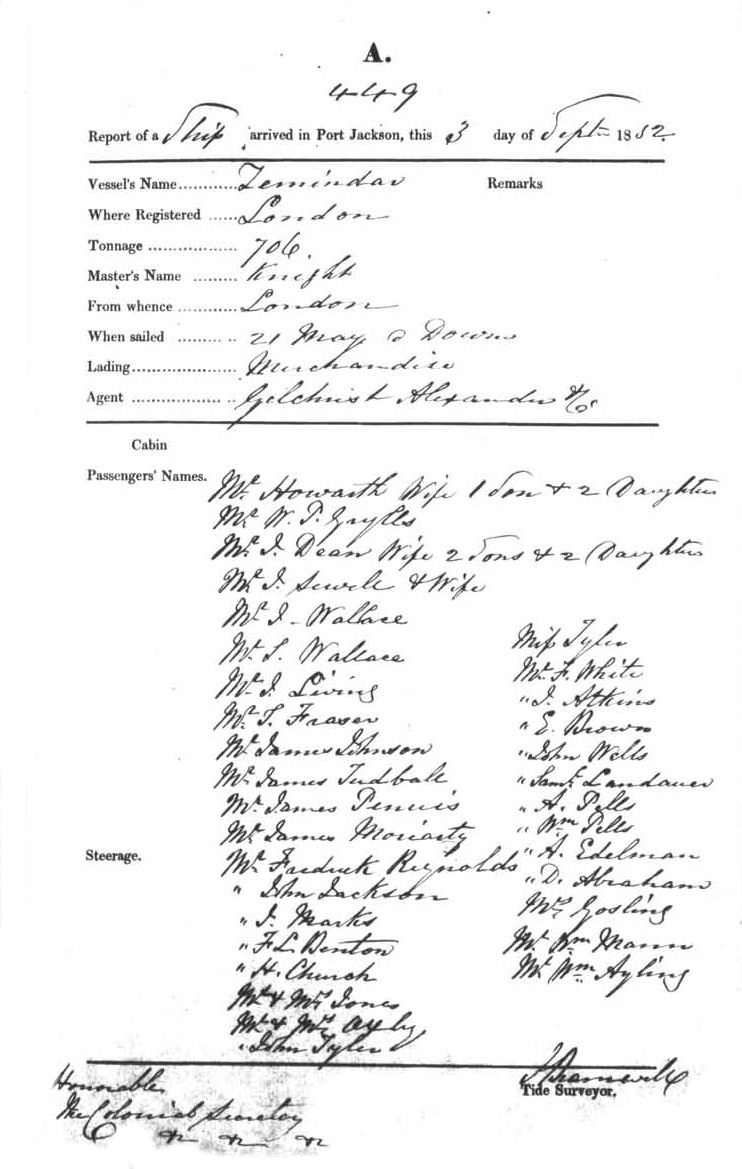 A.
449
Report of a Ship arrived in Port Jackson, this 3 day of Septr 1852.
Vessel's Name............Zemindar Remarks
Where Registered ......London
Tonnage .................. 706.
Master's Name ......... Knight
From whence ............ London
When sailed ......... .. 21 May @ Downs
Lading..................... Merchandise
Agent ................. .. Gilchrist Alexander & Co
Cabin
Passengers' Names.
Mr Howarth Wife 1 Son & 2 Daughters
Mr W. P. Grylls
Mr J. Dean Wife 2 Sons & 2 Daughters
Mr J. Sewell & Wife
Mr J - Wallace
Mr S. Wallace
Mr J. Living
Mr T. Fraser
Mr James Johnson
Mr James Tudball
Mr James Pennis
Mr James Moriarty
Steerage.
Mr Fredrick Reynolds
" John Jackson
" J. Marks
" F L. Benton
" H. Church
Mr & Mrs Jones
Mr & Mrs Axby
" John Tyler
Miss Tyler
Mr F. White
" J. Atkins
" E. Brown
" John Wells
" Saml Landauer
" A. Pells
" Wm Pells
" A. Edelman
" D. Abraham
Mrs Gosling
Mr Wm Mann
Mr Wm Ayling
Honorable
The Colonial Secretary
&c &c &c
J Bramwell
Tide Surveyor.